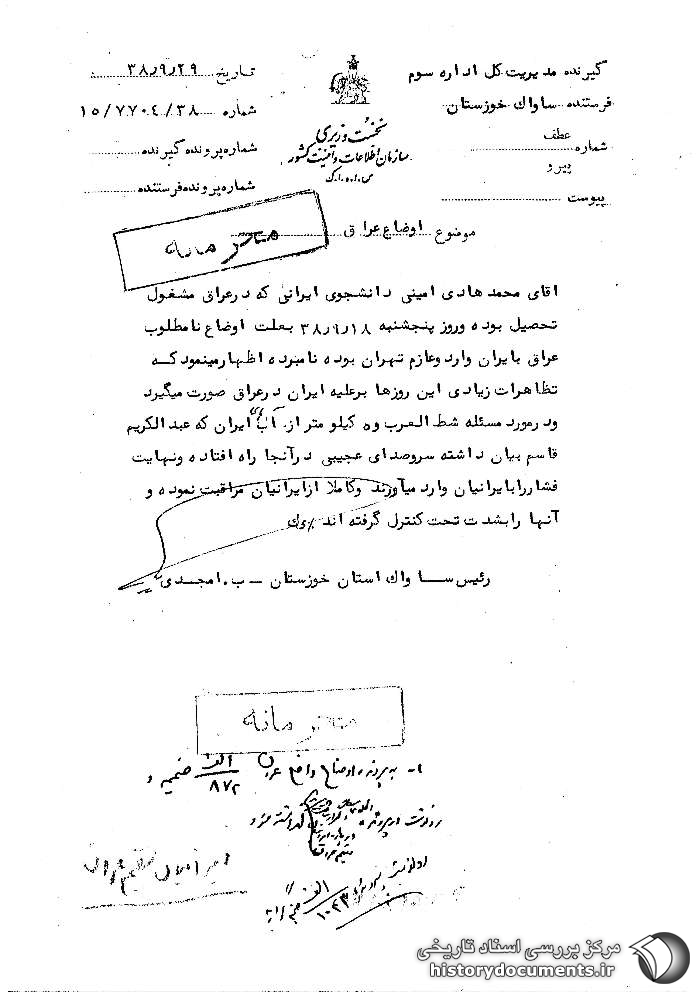 گیرنده مدیریت کل اداره سوم
فرستنده ساواك خوزستان
شماره عطف
پیرو
پیوست
نخست وزیری
سازمان اطلاعات و امنیت کشور
س.ا.و.ا.ک
تاریخ ۳۸٫۹٫۲۹
شماره ۱۵/۷۷۰٤/۳۸
شماره پرونده گیرنده
شماره پرونده فرستنده
موضوع اوضاع عراق
محرمانه
اقای محمد هادی امینی دانشجوی ایرانی که درعراق مشغول
تحصیل بوده وروز پنجشنبه ۳۸٫۹٫۱۸ بعلت اوضاع نامطلوب
عراق بایران وارد وعازم تهران بوده نامبرده اظهارمینمود که
تظاهرات زیادی این روزها برعلیه ایران درعراق صورت میگیرد
ودرمورد مسئله شط العرب وه کیلو متر از آب ایران که عبدالکریم
قاسم بیان داشته سروصدای عجیبی درآنجا راه افتاده ونهایت
فشاررابایرانیان وارد میآورند وکاملا ازایرانیان مراقبت نموده و
آنها رابشدت تحت کنترل گرفته اند
رئیس ساواك استان خوزستان ــ ب. امجدی
محرمانه
۱- به پرونده اوضاع عراق الف ۸۷۲ ضمیمه و
رونوشت در پرونده گذاشته شود
الف ۱۰۲۳
مرکز بررسی اسناد تاریخی
historydocuments.ir